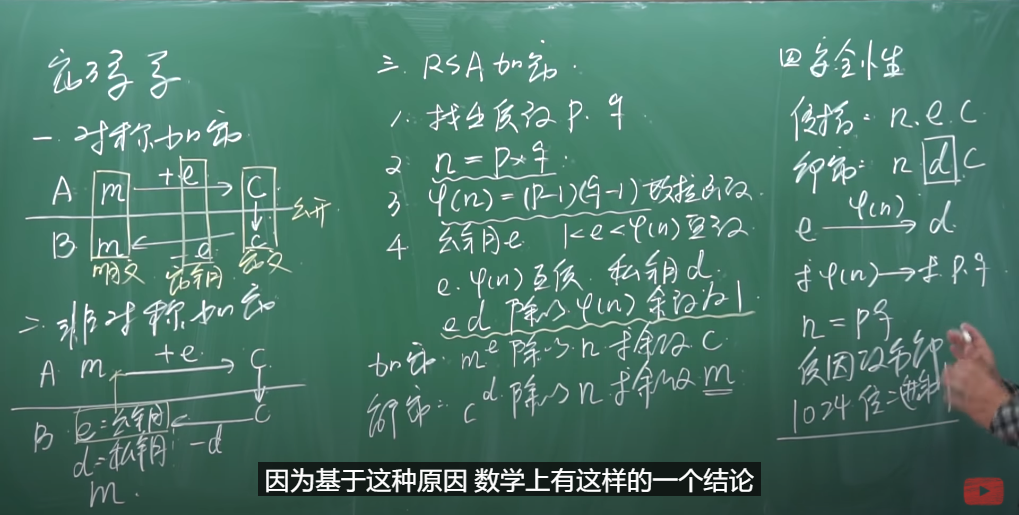 密码学
一.对称加密
A m +e C
公开
B m -e C
明文 密钥 密文
二.非对称加密
A m +e C
C
B e=公钥
d=私钥 -d
m.
三.RSA加密.
1.找出质数p.q
2 n=p×q.
3 φ(n)=(p-1)(q-1) 欧拉函数
4 公钥e 1<e<φ(n)互质
e.φ(n)互质.私钥d.
ed除以φ(n)余数为1
加密:m^e除以n求余数C
解密:c^d除以n求余数m
四安全性
传播:n.e.C
解密:n d C
e φ(n) d
求φ(n)→求p.q
n=pq
质因数分解
1024位二进制
因为基于这种原因 数学上有这样的一个结论